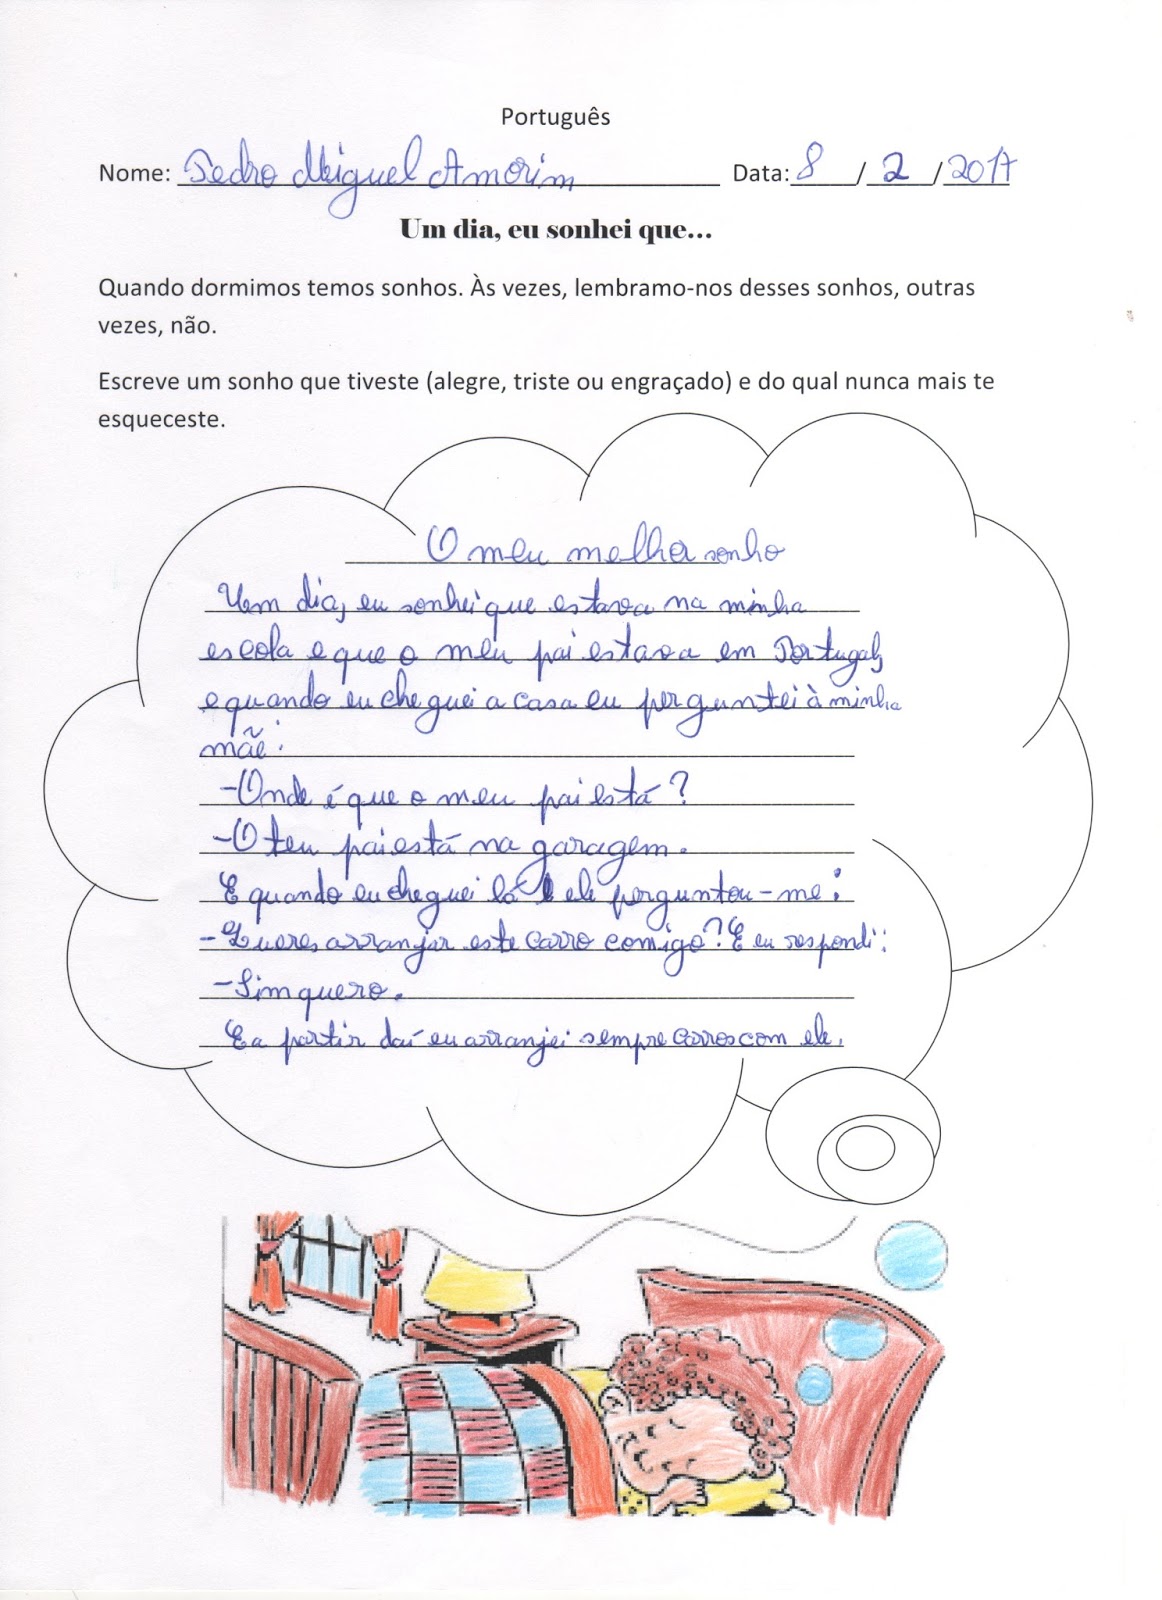 Português
Nome: Pedro Miguel Amorim Data: 8 / 2 / 2017
Um dia, eu sonhei que...
Quando dormimos temos sonhos. Às vezes, lembramo-nos desses sonhos, outras
vezes, não.
Escreve um sonho que tiveste (alegre, triste ou engraçado) e do qual nunca mais te
esqueceste.
O meu melhor sonho
Um dia, eu sonhei que estava na minha
escola e que o meu pai estava em Portugal,
e quando eu cheguei a casa eu perguntei à minha
mãe:
-Onde é que o meu pai está?
-O teu pai está na garagem.
E quando eu cheguei lá ele perguntou-me:
-Queres arranjar este carro comigo? E eu respondi:
-Sim quero.
E a partir daí eu arranjei sempre carros com ele.